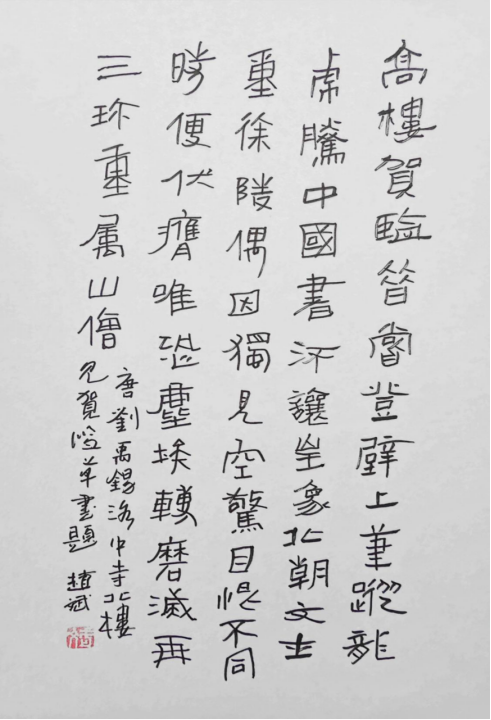 高樓賀臨昔嘗登壁上筆蹤龍
虎騰中國書汗讓皇象北朝文士
重徐陵偶因獨見空驚目恨不同
時便伏膺唯恐塵埃轉磨滅再
三珍重属山僧
唐劉禹錫洛中寺北樓
見賀監草書題 趙斌